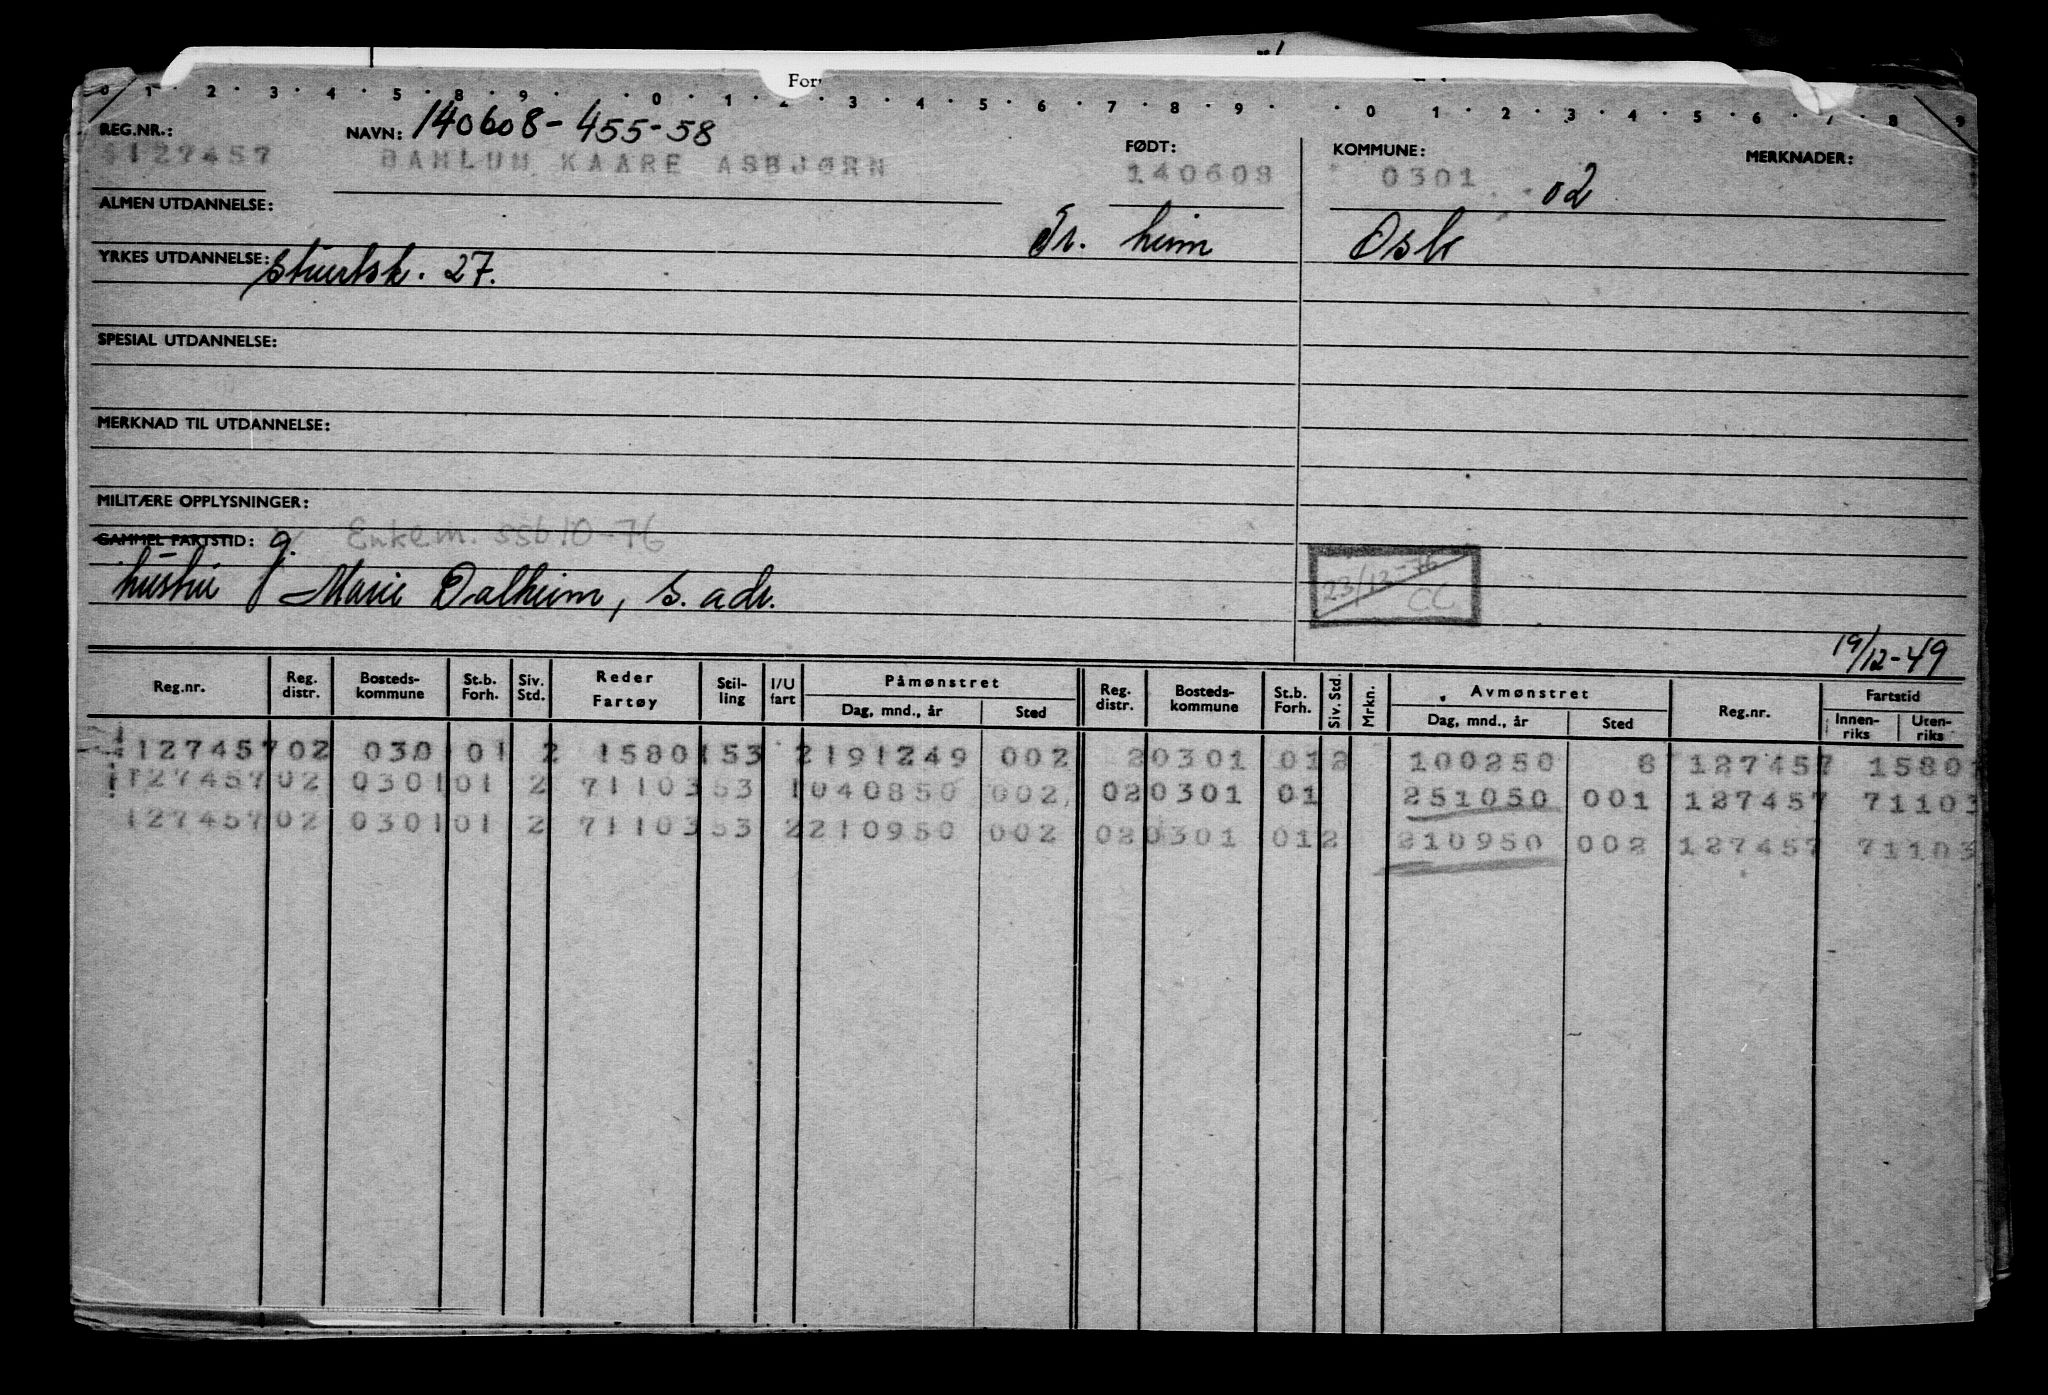 0 1 2 3 4 5 8 9 0 1 2 3 4 5 6 7 8 9 0 1 2 3 4 5 6 7 8 9
REG.NR.: NAVN: 140608-455-58 FØDT: KOMMUNE: MERKNADER:
127457 KAARE ASBJØRN 140608 0301 02
ALMEN UTDANNELSE: Tr. heim Oslo
YRKES UTDANNELSE: stuertsk. 27.
SPESIAL UTDANNELSE:
MERKNAD TIL UTDANNELSE:
MILITÆRE OPPLYSNINGER:
GAMMEL FARTSTID: g. Enkem. ssb 10-76
hustru Marie Dalheim, s. adr. 23/12-76 CL
19/12-49
Reg.nr. Reg. distr. Bosteds-kommune St.b. Forh. Siv. Std. Reder Fartøy Stil-ling I/U fart Påmønstret Dag, mnd., år Sted Reg. distr. Bosteds-kommune St.b. Forh. Siv. Std. Mrkn. Avmønstret Dag, mnd., år Sted Reg.nr. Fartstid Innen-riks Uten-riks
127457 02 0301 01 2 1580153 2 191249 002 2 0301 01 2 100250 6 127457 1580
127457 02 0301 01 2 7110353 1 040850 002 02 0301 01 251050 001 127457 71103
127457 02 0301 01 2 7110353 2 210950 002 02 0301 01 2 210950 002 127457 71103